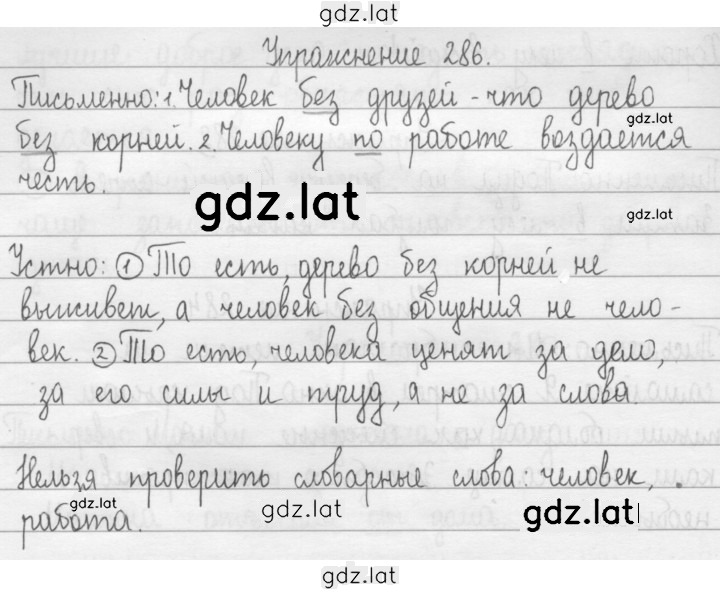 gdz.lat
Упражнение 286.
Письменно: 1. Человек без друзей - что дерево
gdz.lat
без корней. 2. Человеку по работе воздается
честь.
gdz.lat
gdz.lat
Устно: 1 То есть, дерево без корней не
выживет, а человек без общения не чело-
век. 2 То есть, человека ценят за дело,
за его силы и труд, а не за слова.
Нельзя проверить словарные слова: человек,
gdz.lat
работа.
gdz.lat
gdz.lat
gdz.lat